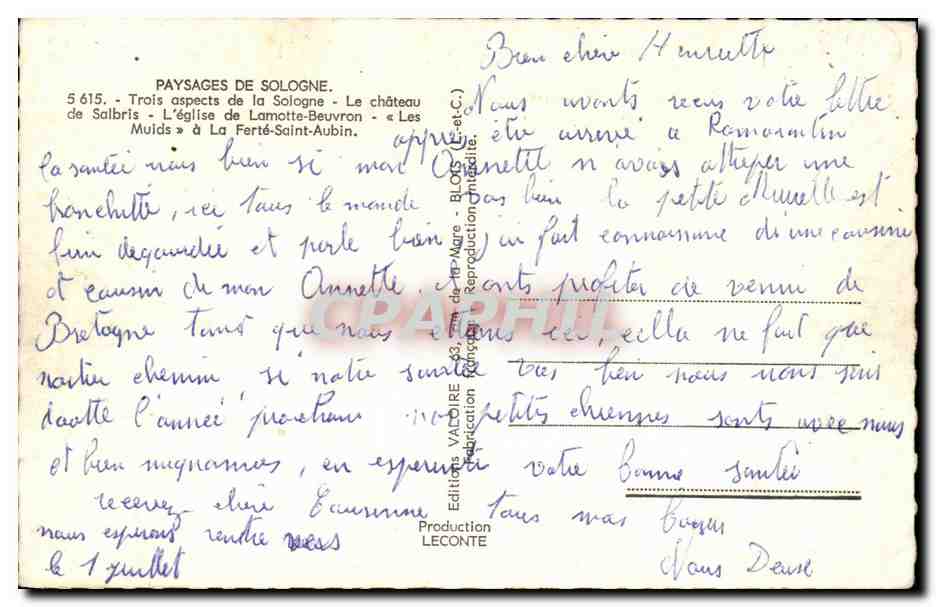 PAYSAGES DE SOLOGNE.
5 615. - Trois aspects de la Sologne - Le château
de Salbris - L'église de Lamotte-Beuvron - « Les
Muids » à La Ferté-Saint-Aubin.
Editions VALOIRE - 63, de la Mare - BLOIS (L.-et-C.)
Fabrication Française - Reproduction interdite.
Production
LECONTE
CPARHIL
Bien chère Henriette
Nous avonts reçus votre lettre
appres être arrivé a Romorantin
la santée nous bien si mon Annette n'avais attreper une
bronchitte, ici tous le monde vas bien la petite est
bien degourdie et parle bien, j'ai fait connaissance di une cousine
et cousin de mon Annette. ont profiter de venir de
Bretagne tans que nous etions ici, cella ne fait que
chemin, si notre santée vas bien nous nous
doutte l'année prochain nos petites chiennes sonts avec nous
et bien mignonnes, en esperent votre bonne santée
recevez chère Cousinne tous mas
nous esperons rentre vers
le 1 juillet